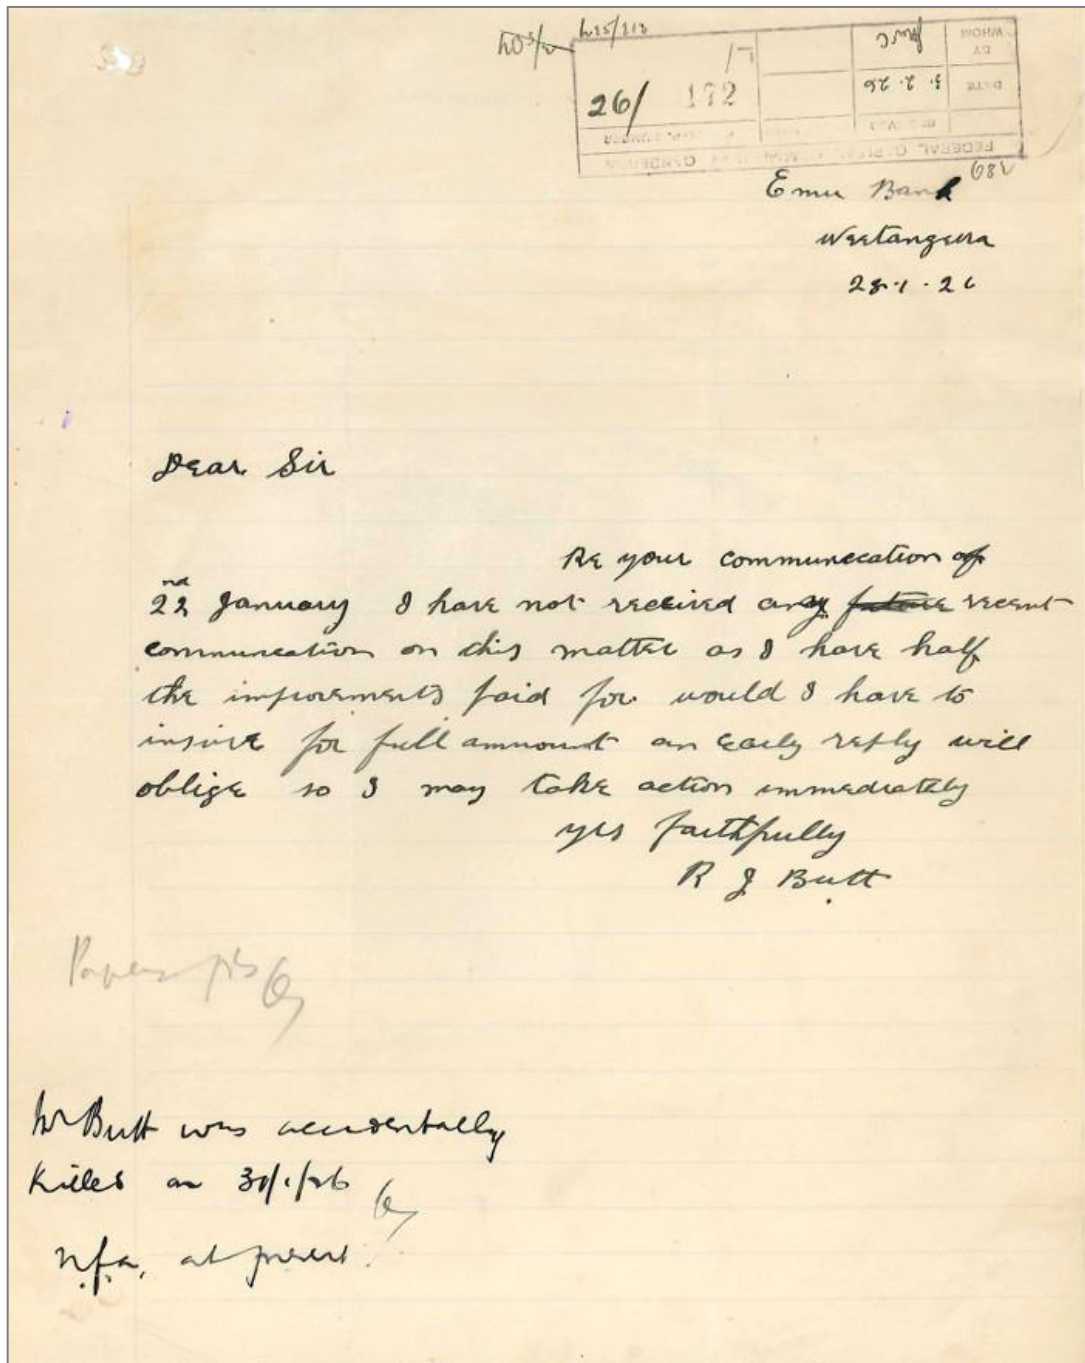 L25/213
26/ 172
BY WHOM
DATE 3.2.26
FEDERAL CAPITAL COMMISSION CANBERRA
Emu Bank
Weetangera
28.1.26
Dear Sir
Re your communecation of
22nd January I have not received any future recent
communcation on this matter as I have half
the improvements paid for would I have to
insure for full ammount an early reply will
oblige so I may take action immediately
yrs faithfully
R J Butt
Papers pls
Mr Butt was accidentally
killed on 30/1/26
n.f.a. at present.